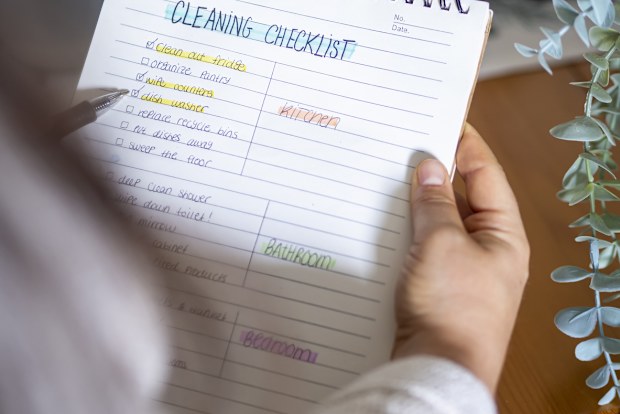 No.
Date.
CLEANING CHECKLIST
clean out fridge
organize pantry
wipe counters
dish washer
replace recycle bins
put dishes away
sweep the floor
KITCHEN
deep clean shower
wipe down toilet!
mirrow
BATHROOM
Bedroom